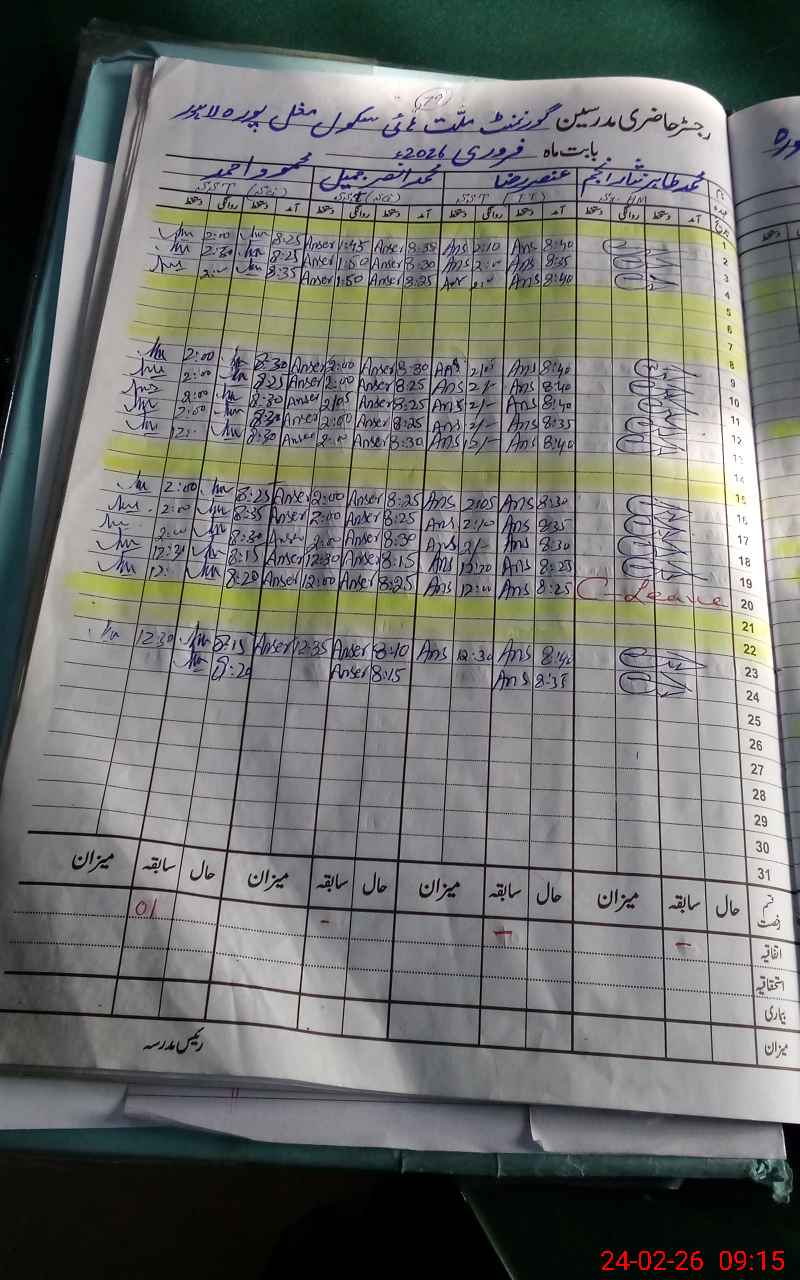 رجسٹر حاضری مدرسین گورنمنٹ ملّت ہائی سکول مغل پورہ لاہور
بابت ماہ فروری 2026ء
نام محمد طاہر نثار انجم عنصر رضا محمد انصر جمیل محمود احمد
عہدہ Sr. HM SST (IT) SST (Sci) SST (Sci)
تاریخ دستخط روانگی دستخط آمد دستخط روانگی دستخط آمد دستخط روانگی دستخط آمد
1
2:00 8:25 Anser 1:45 Anser 8:35 Ans 2:10 Ans 8:40 2
2:30 8:25 Anser 1:50 Anser 8:30 Ans 2:00 Ans 8:35 3
2:00 8:35 Anser 1:50 Anser 8:25 Ans Ans 8:40 4
5
6
7
8
2:00 8:30 Anser 2:00 Anser 8:30 Ans 2/05 Ans 8:40 9
2:00 8:25 Anser 2:00 Anser 8:25 Ans 2/- Ans 8:40 10
2:00 8:30 Anser 2:05 Anser 8:25 Ans 2/- Ans 8:40 11
2:00 8:30 Anser 2:00 Anser 8:25 Ans 2/- Ans 8:35 12
12: 8:30 Anser Anser 8:30 Ans 12/- Ans 8:40 13
14
15
2:00 8:25 Anser 2:00 Anser 8:25 Ans 2:05 Ans 8:30 16
2:00 8:35 Anser 2:00 Anser 8:25 Ans 2:10 Ans 8:35 17
2:00 8:30 Anser 2:00 Anser 8:30 Ans 2/- Ans 8:30 18
12:30 8:15 Anser 12:30 Anser 8:15 Ans 12:20 Ans 8:25 19
12: 8:20 Anser 12:00 Anser 8:25 Ans 12:00 Ans 8:25 C-Leave 20
21
22
12:30 8:15 Anser 12:35 Anser 8:10 Ans 12:30 Ans 8:40 23
8:20 Anser 8:15 Ans 8:35 24
25
26
27
28
29
30
31
قسم رخصت حال سابقہ میزان حال سابقہ میزان حال سابقہ میزان حال سابقہ میزان
اتفاقیہ - - - 01
استحقاقیہ
بیماری
میزان
رئیس مدرسہ
24-02-26 09:15